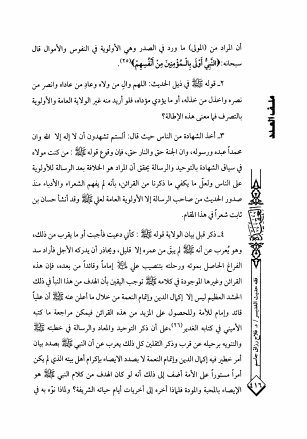 أن المراد من (المولى) ما ورد في الصدر وهي الأولوية في النفوس والأموال قال
سبحانه: ﴿النَّبِيُّ أَوْلَى بِالْمُؤْمِنِينَ مِنْ أَنْفُسِهِمْ﴾(٢٥).
٢ـ قوله ﷺ في ذيل الحديث: اللهم وال من ولاه وعاد من عاداه وانصر من
نصره واخذل من خذله، أو ما يؤدي مؤداه، فلو أريد منه غير الولاية العامة والأولوية
بالتصرف فما معنى هذه الإطالة؟
٣ـ أخذ الشهادة من الناس حيث قال: ألستم تشهدون أن لا إله إلا الله وان
محمداً عبده ورسوله، وان الجنة حق والنار حق، فإن وقوع قوله ﷺ: من كنت مولاه
في سياق الشهادة بالتوحيد والرسالة يحقق أن المراد هو الخلافة بعد الرسالة للأولوية
على الناس ولعل ما يكفي ما ذكرنا من القرائن، بأنه لم يفهم الشعراء والأدباء منذ
صدور الحديث من صاحب الرسالة إلا الأولوية العامة لعلي وقد أنشأ حسان بن
ثابت شعراً في هذا المقام.
٤ـ ذكر قبل بيان الولاية قوله ﷺ: كأني دعيت فأجبت أو ما يقرب من ذلك،
وهو يُعرب عن أنه ﷺ لم يبق من عمره إلا قليل، ويحاذر أن يدركه الأجل فأراد سد
الفراغ الحاصل بموته ورحلته بتنصيب علي إماماً وقائداً من بعده، فإن هذه
القرائن وغيرها الموجودة في كلامه توجب اليقين بأن الهدف من هذا النبأ في ذلك
الحشد العظيم ليس إلا إكمال الدين وإتمام النعمة من خلال ما أعلن عنه ﷺ أن علياً
قائد وإمام للأمة وللحصول على المزيد من هذه القرائن فيمكن مراجعة ما كتبه
الأميني في كتابه الغدير(٢٦)، على أن ذكر التوحيد والمعاد والرسالة في خطبته ﷺ
والتنويه برحيله عن قرب وذكر الثقلين كل ذلك يعرب عن أن النبي ﷺ بصدد بيان
أمر خطير فيه إكمال الدين وإتمام النعمة لا بصدد الايصاء بإكرام أهل بيته الذي لم يكن
أمراً مستوراً على الأمة أضف إلى ذلك أنه لو كان الهدف من كلام النبي ﷺ هو
الإيصاء بالمحبة والمودة فلماذا أخره إلى أخريات أيام حياته الشريفة؟ ولماذا نوّه به في
ملف العدد
١١٦